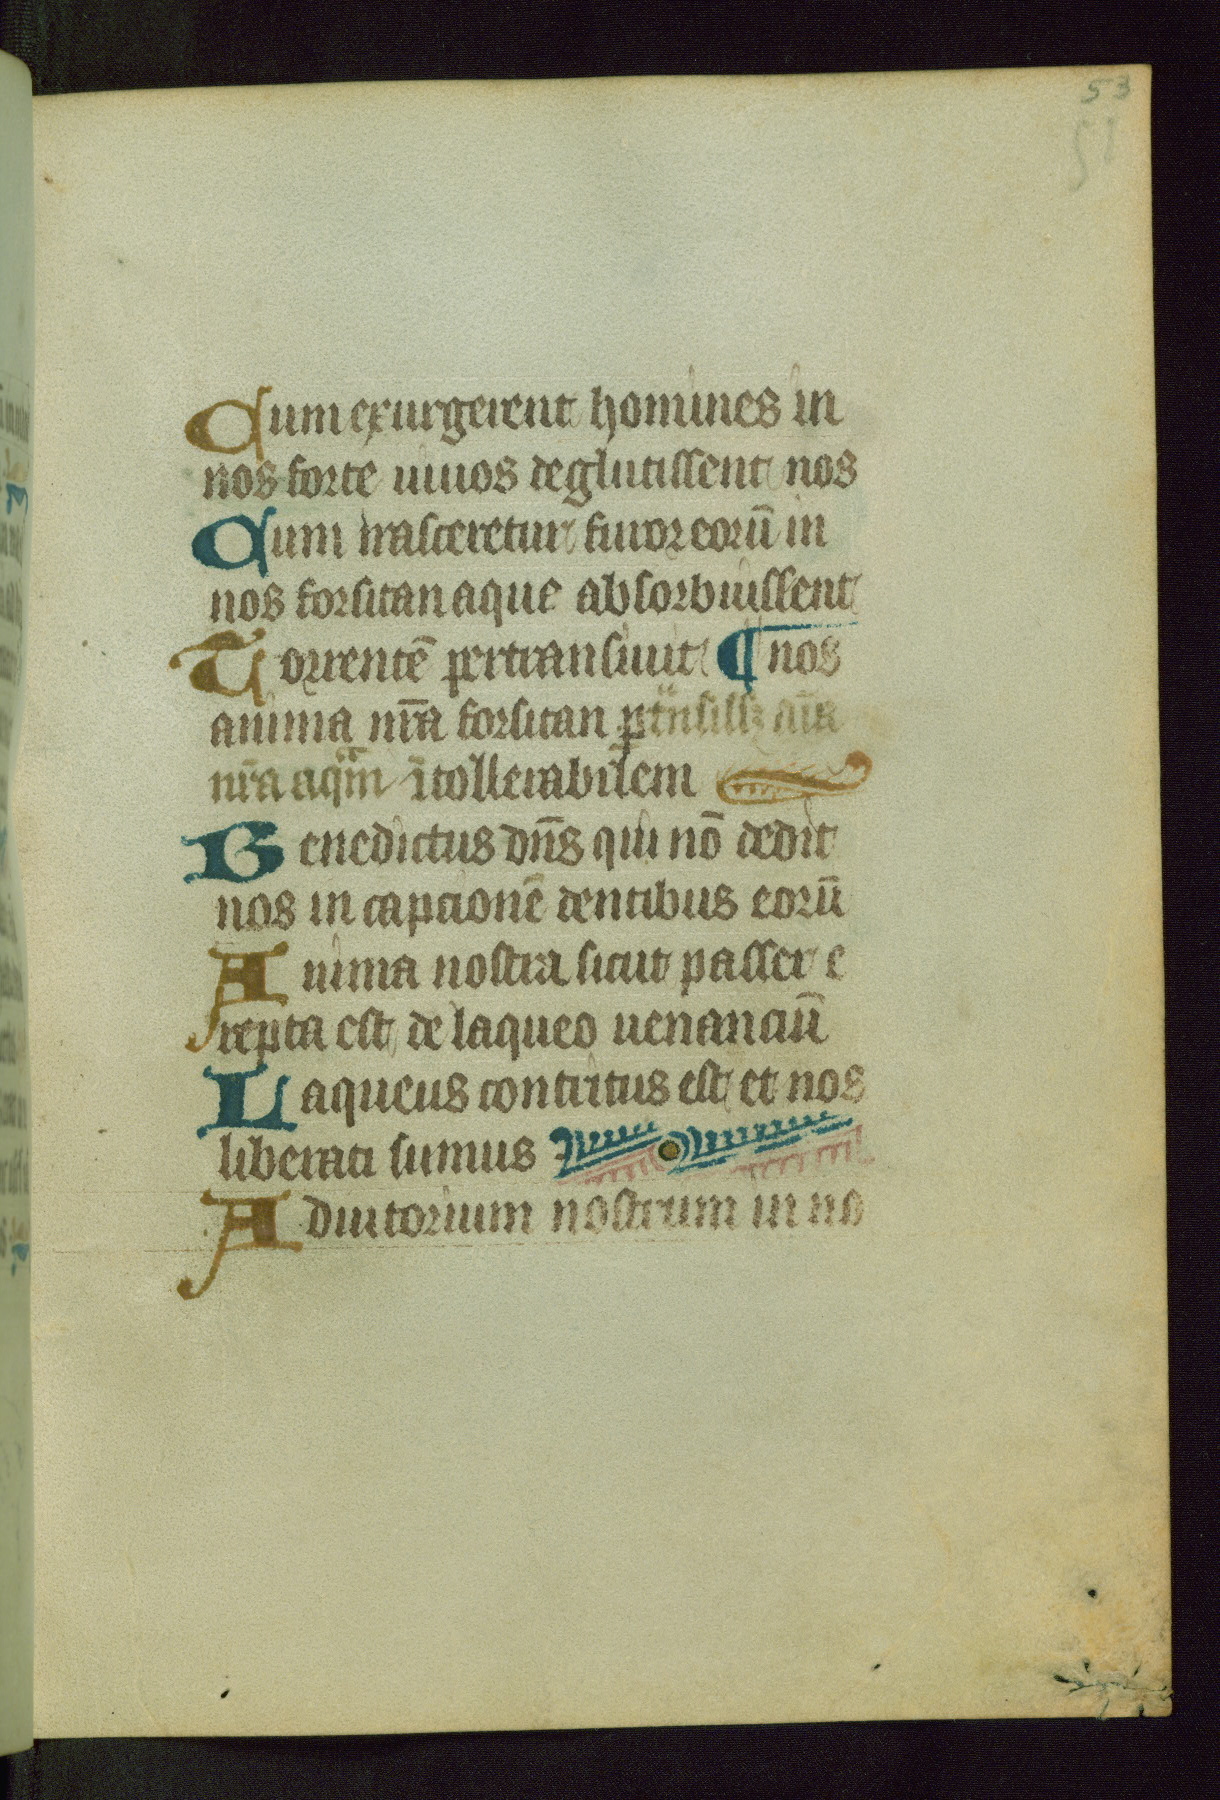 53
51
Cum exurgerent homines in
nos forte uiuos deglutissent nos
Cum irasceretur furor eorū in
nos forsitan aque absorbuissent
Torrentē pertransiuit ¶ nos
anima nr̄a forsitan
nr̄a aquam ītollerabilem
Benedictus dn̄s qui nō dedit
nos in captionē dentibus eorū
Anima nostra sicut passer e
repta est de laqueo uenanciū
Laqueus contritus est et nos
liberati sumus
Adiutorium nostrum in no